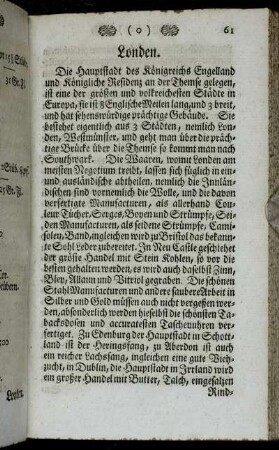 ( o ) 61
Londen.
Die Hauptstadt des Königreichs Engelland
und Königliche Residenz an der Themse gelegen,
ist eine der größen und volkreichesten Städte in
Europa, sie ist 3 Englische Meilen lang, und 3 breit,
und hat sehenswürdige prächtige Gebäude. Sie
bestehet eigentlich aus 3 Städten, nemlich Lon-
den, Westmünster, und geht man über die präch-
tige Brücke über die Themse so kommt man nach
Southvark. Die Waaren, womit Londen am
meisten Negotium treibt, lassen sich füglich in ein-
und ausländische abtheilen, nemlich die Innlän-
dischen sind vornemlich die Wolle, und die davon
verfertigte Manufacturen, als allerhand Cou-
leur Tücher, Serges, Boyen und Strümpfe, Sei-
den Manufacturen, als seidene Strümpfe, Cami-
solen, Band, ingleichen wird zu Bristol das bekann-
te Sohl Leder zubereitet. In Neu Castle geschiehet
der gröste Handel mit Stein Kohlen, so vor die
besten gehalten werden, es wird auch daselbst Zinn,
Bley, Allaun und Vitriol gegraben. Die schönen
Stahl Manufacturen und andere saubere Arbeit in
Silber und Gold müssen auch nicht vergessen wer-
den, absonderlich werden hieselbst die schönsten Ta-
backsdosen und accuratesten Taschenuhren ver-
fertiget. Zu Edenburg der Hauptstadt in Schott-
land ist der Heringsfang, zu Aberdon ist auch
ein reicher Lachsfang, ingleichen eine gute Vieh-
zucht, in Dublin, die Hauptstadt in Irrland wird
ein großer Handel mit Butter, Talch, eingesalzen
Rind-